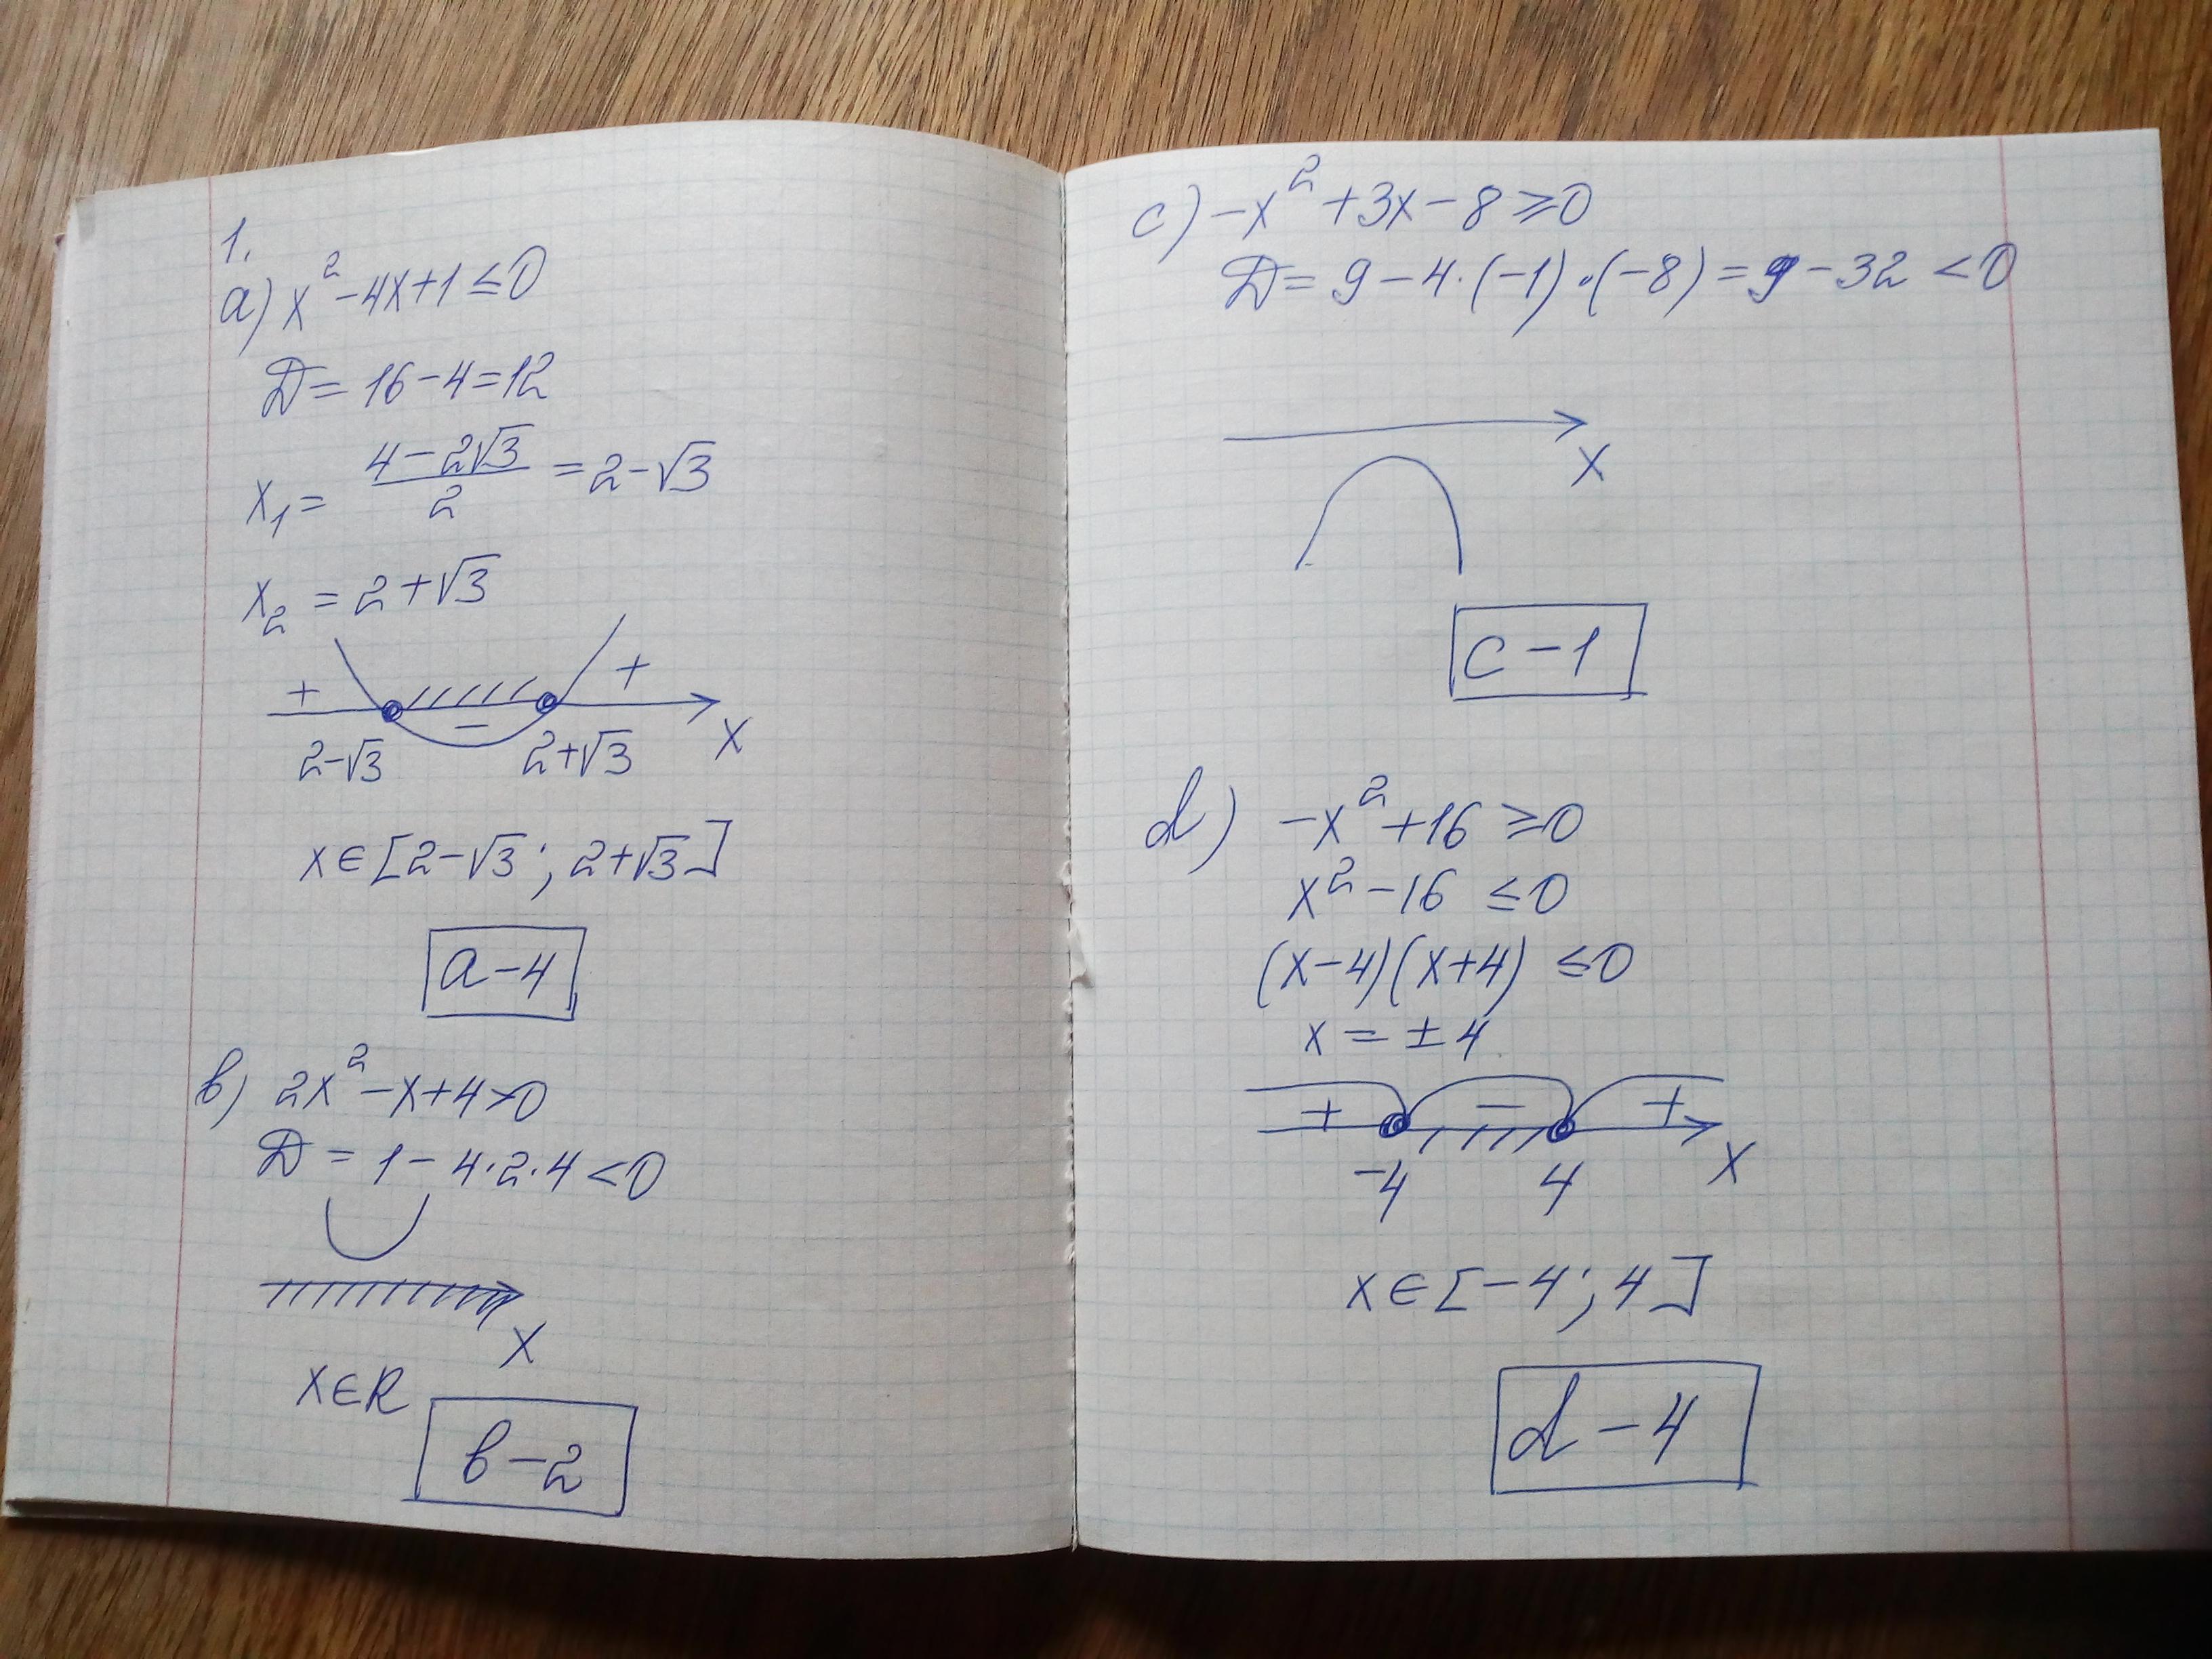 1.
a) x² - 4x + 1 ≤ 0
D = 16 - 4 = 12
x₁ = (4 - 2√3)/2 = 2 - √3
x₂ = 2 + √3
+ - +
2-√3 2+√3 x
x ∈ [2-√3; 2+√3]
a - 4
b) 2x² - x + 4 > 0
D = 1 - 4·2·4 < 0
x
x ∈ R
b - 2
c) -x² + 3x - 8 ≥ 0
D = 9 - 4·(-1)·(-8) = 9 - 32 < 0
x
c - 1
d) -x² + 16 ≥ 0
x² - 16 ≤ 0
(x-4)(x+4) ≤ 0
x = ± 4
+ - +
-4 4 x
x ∈ [-4; 4]
d - 4